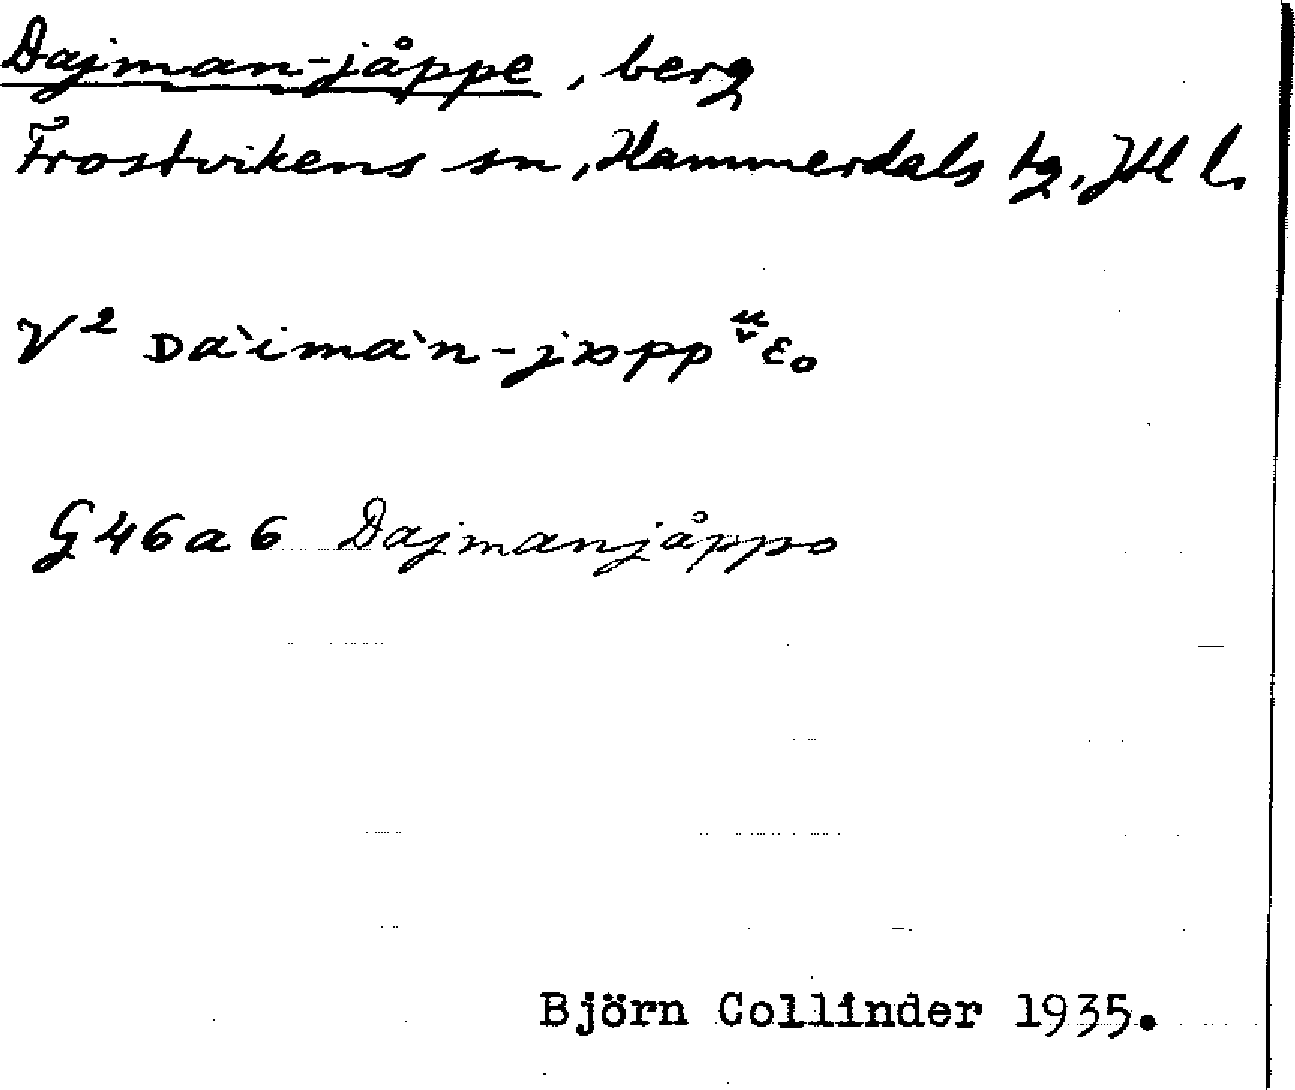 Dajman-jåppe, berg
Frostvikens sn, Hammerdals tg, Jtl l.
V² Dàimàn-jɔpp
G46a6 Dajmanjåppo
Björn Collinder 1935.